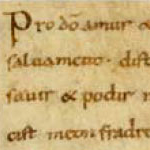 Pro dō amur &
saluament. dist
sauir & podir
cist meon fradre